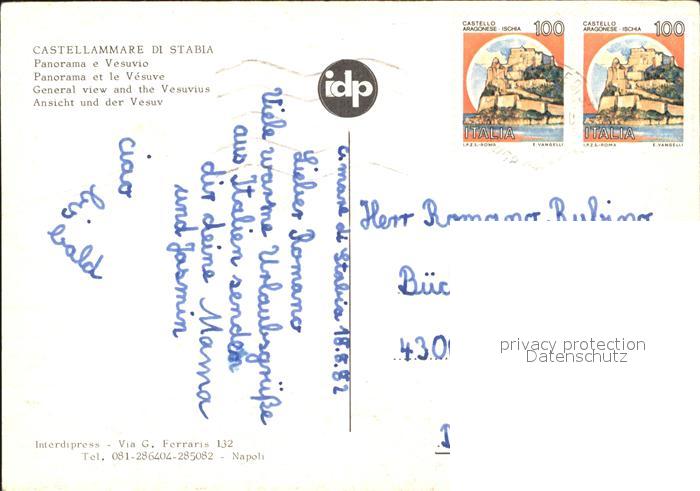 CASTELLAMMARE DI STABIA
Panorama e Vesuvio
Panorama et le Vésuve
General view and the Vesuvius
Ansicht und der Vesuv
idp
CASTELLO
ARAGONESE - ISCHIA
100
ITALIA
I.P.Z.S. - ROMA
E. VANGELLI
CASTELLO
ARAGONESE - ISCHIA
100
ITALIA
I.P.Z.S. - ROMA
E. VANGELLI
C.mare di Stabia 18.8.82
Lieber Romano
Viele warme Urlaubsgrüße
aus Italien senden
dir deine Mama
und Jasmin
Ciao
bis bald
Herr Romano Rubino
Büc
4300
privacy protection
Datenschutz
Interdipress - Via G. Ferraris 132
Tel. 081-286404-285082 - Napoli